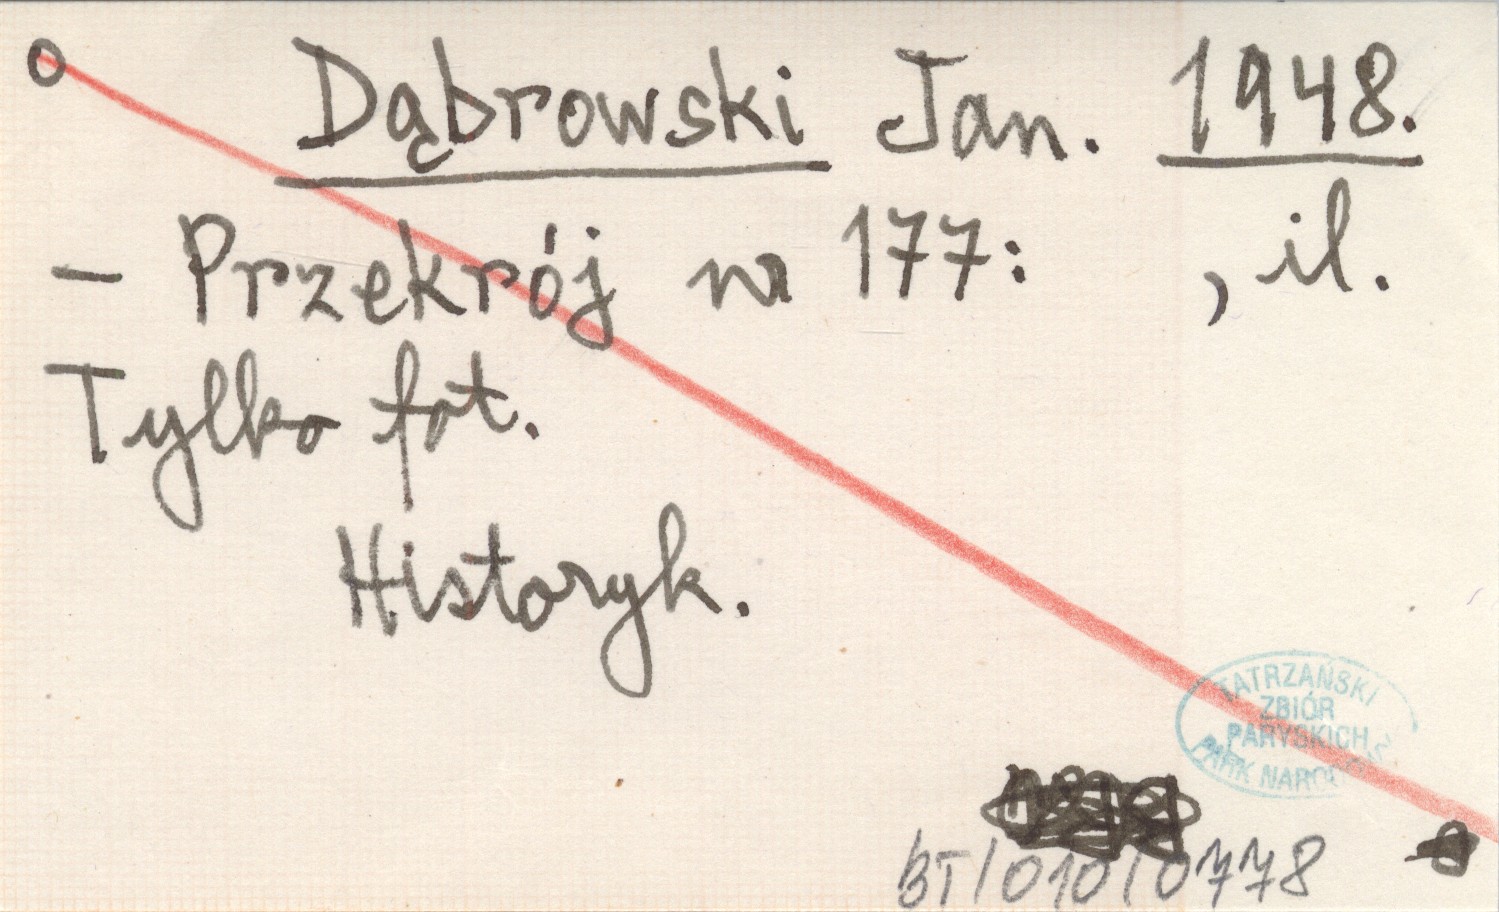 O Dąbrowski Jan. 1948.
– Przekrój nr 177: , il.
Tylko fot.
Historyk.
TATRZAŃSKI
ZBIÓR
PARYSKICH
PARK NARODOWY
BT/010/0778